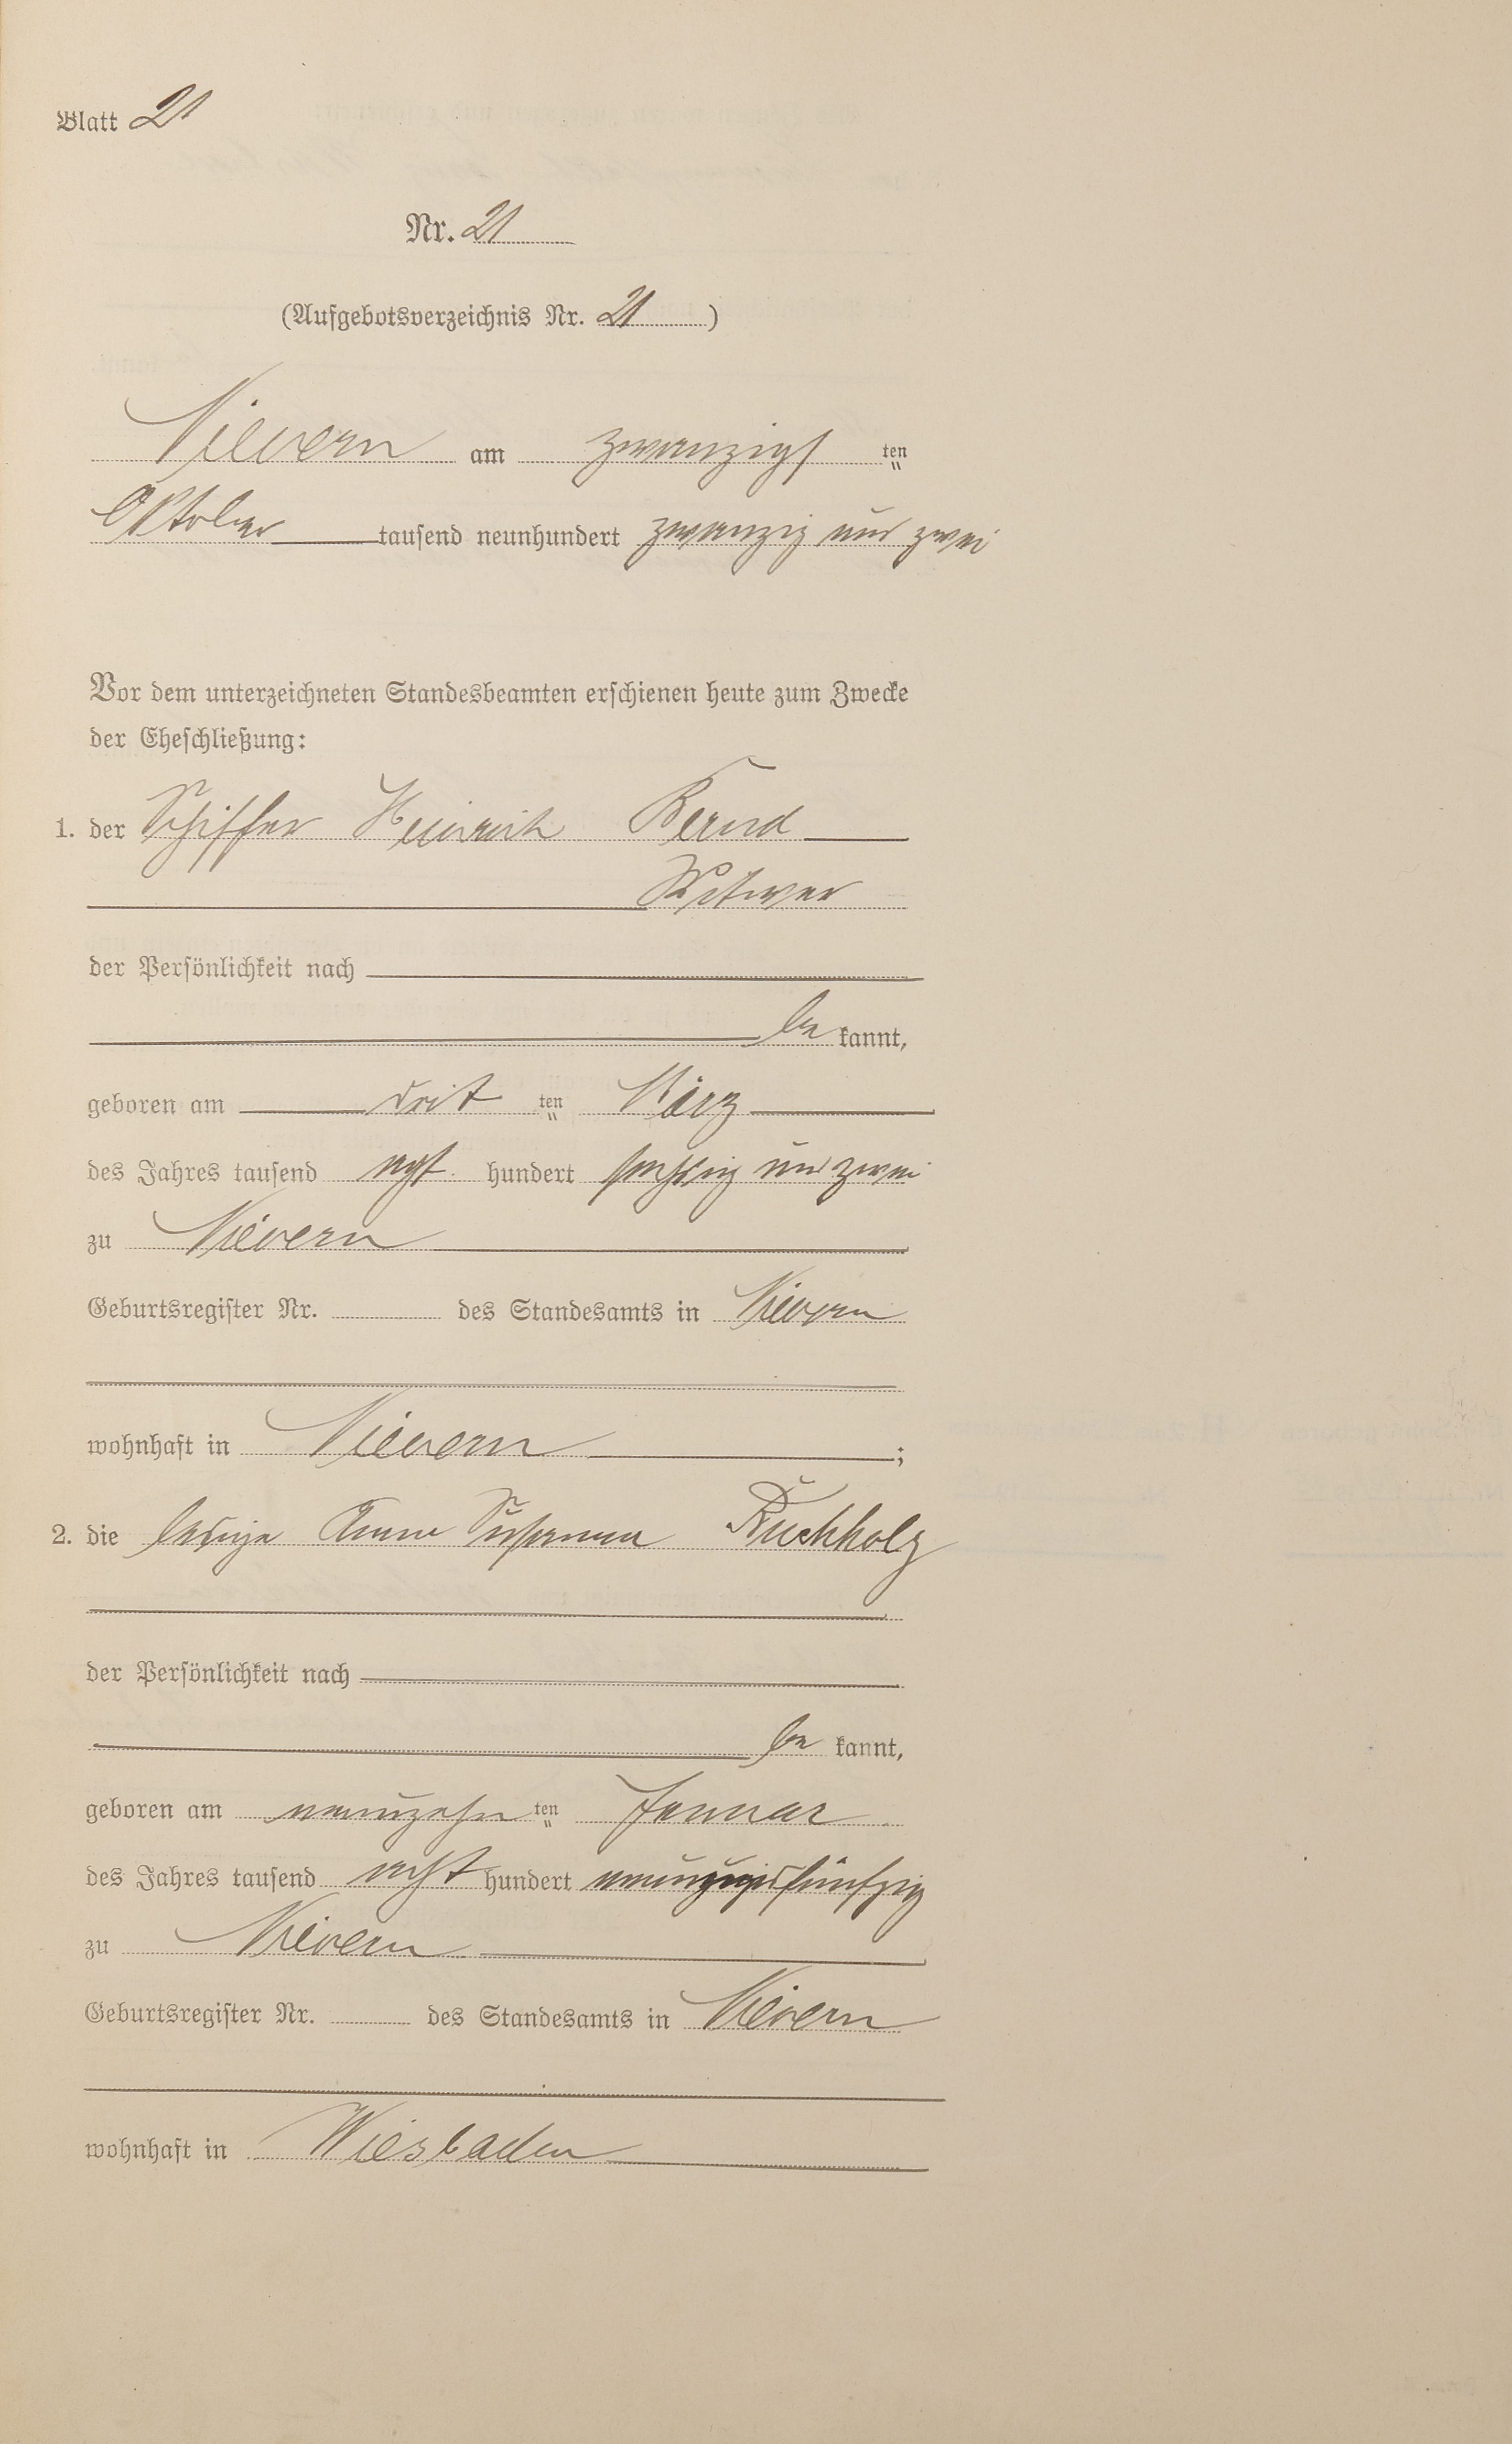 Blatt 21
Nr. 21
(Aufgebotsverzeichnis Nr. 21)
Nievern am zwanzigsten
Oktober tausend neunhundert zwanzig und zwei
Vor dem unterzeichneten Standesbeamten erschienen heute zum Zwecke
der Eheschließung:
1. der Schiffer Heinrich Bernd
Witwer
der Persönlichkeit nach
be kannt,
geboren am dritten März
des Jahres tausend acht hundert sechzig und zwei
zu Nievern
Geburtsregister Nr. des Standesamts in Nievern
wohnhaft in Nievern;
2. die ledige Anna Susanna Buchholz
der Persönlichkeit nach
be kannt,
geboren am neunzehnten Januar
des Jahres tausend acht hundert fünfzig
zu Nievern
Geburtsregister Nr. des Standesamts in Nievern
wohnhaft in Wiesbaden